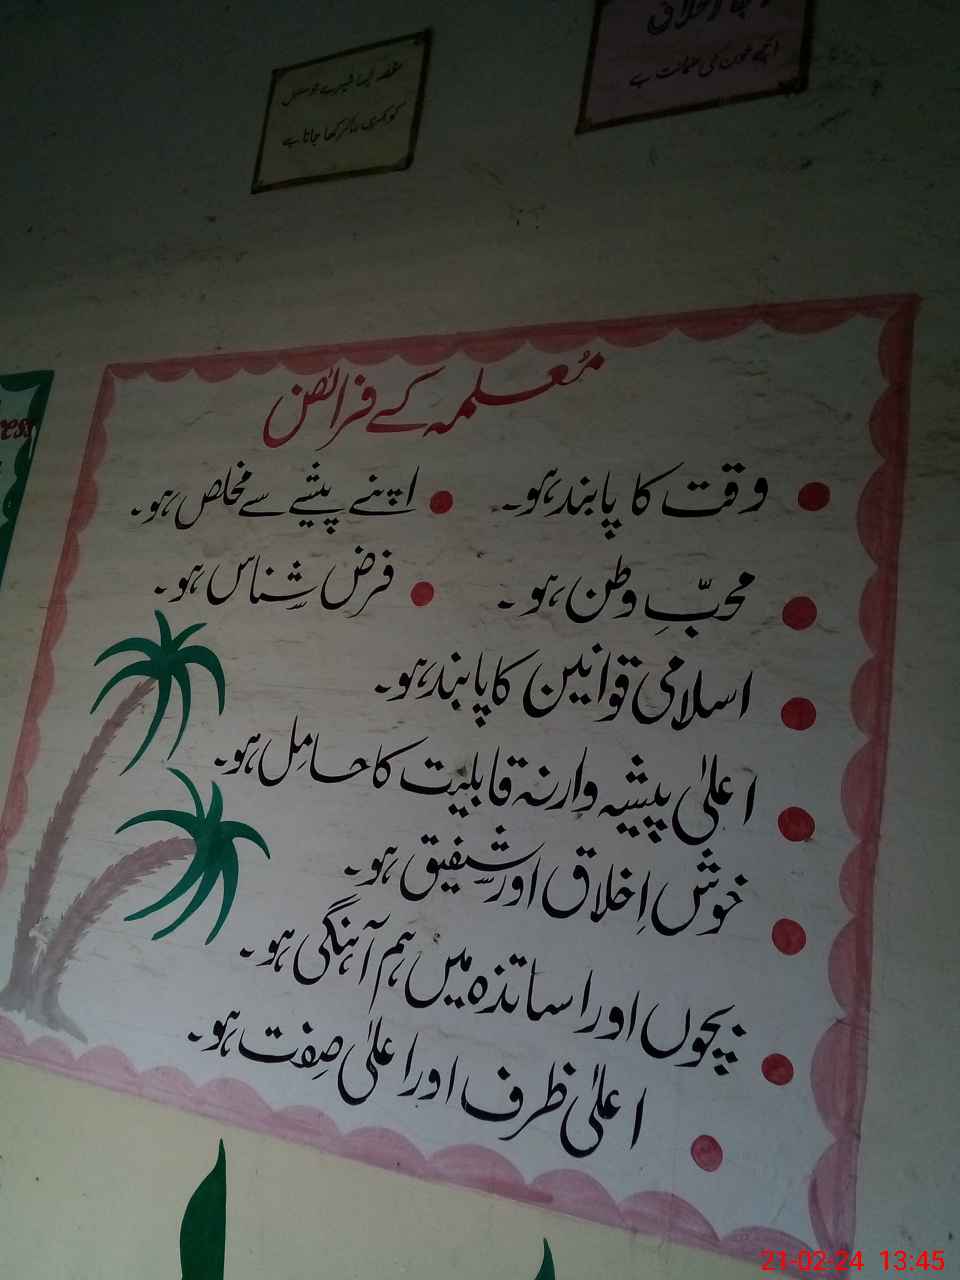 غصہ ایسا شیر ہے جو مستقبل
کو بکری بنا کر کھا جاتا ہے
اچھا اخلاق
اچھے خون کی ضمانت ہے
مُعلمہ کے فرائض
وقت کا پابند ہو۔ اپنے پیشے سے مخلص ہو۔
محبِّ وطن ہو۔ فرض شناس ہو۔
اسلامی قوانین کا پابند ہو۔
اعلیٰ پیشہ وارنہ قابلیت کا حامِل ہو۔
خوش اِخلاق اور شفیق ہو۔
بچوں اور اساتذہ میں ہم آہنگی ہو۔
اعلیٰ ظرف اور اعلیٰ صِفت ہو۔
21-02-24 13:45